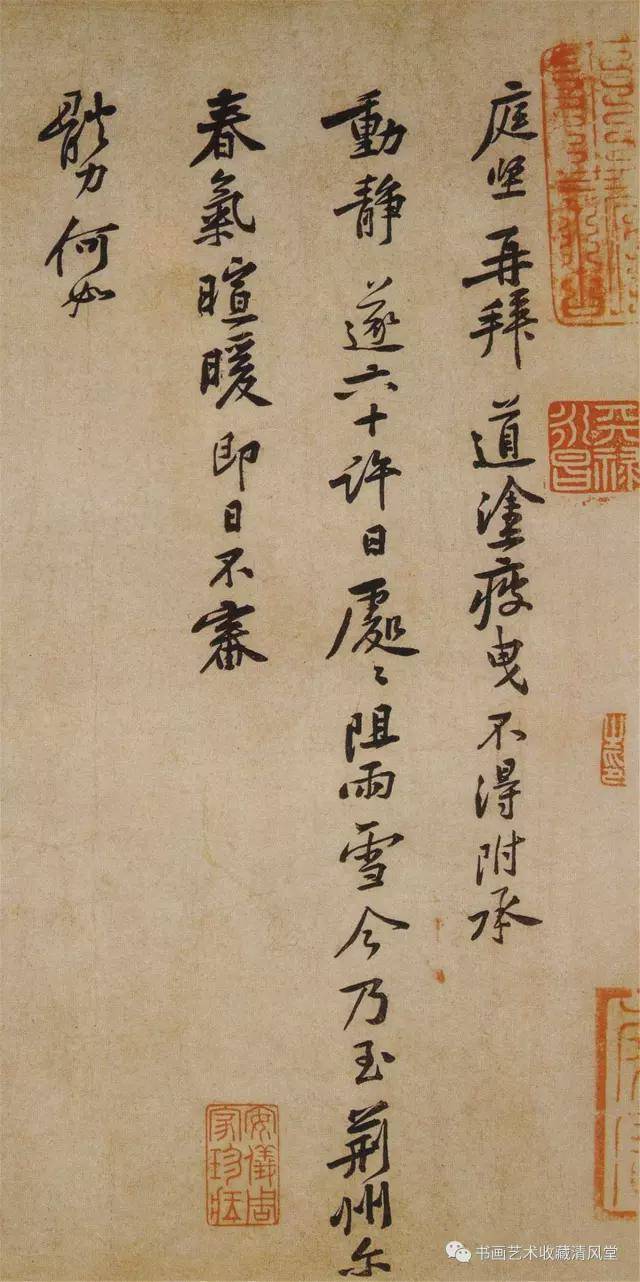 庭坚再拜道塗疲曳不得附承
動静遂六十許日處〻阻雨雪今乃至荆州尔
春氣暄暖即日不審
體力何如
安儀周家珍藏
书画艺术收藏清风堂